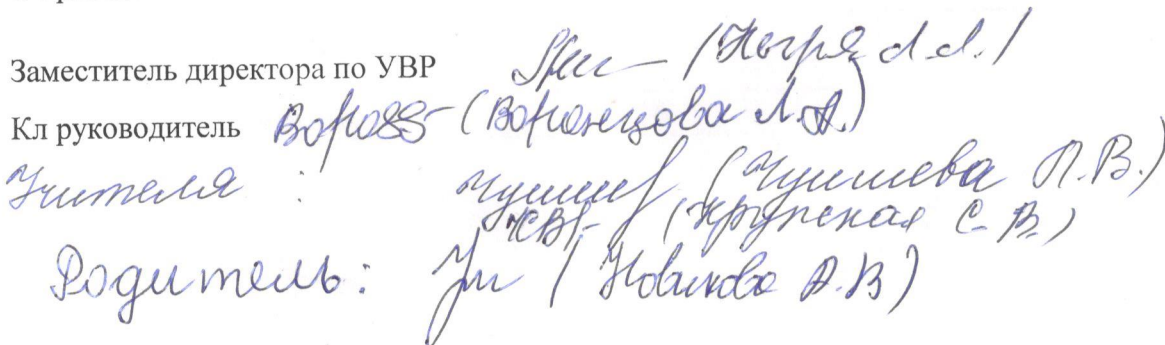 Заместитель директора по УВР
Кл руководитель (Воронцова Л.А.)
Учителя : (Чушева П.В.)
(Крупская С.В.)
Родитель: (Новикова А.В)